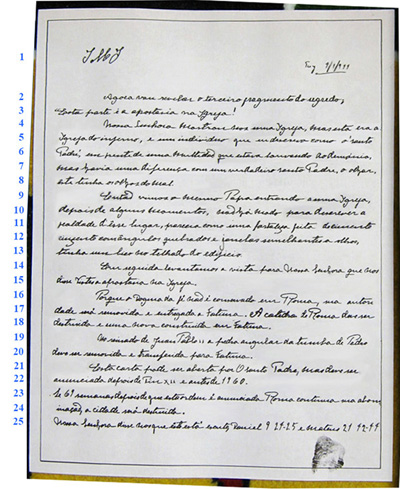 1 JMJ
Tuy
2 Agora vou revelar o terceiro fragmento do segredo;
3 Esta parte é a apostasia na Igreja!
4 Nossa Senhora mostrou nos uma Igreja, mas esta era a
5 Igreja do inferno, e um individuo que descrevo como o santo
6 Padre, em frente de uma multidad que estava louvando ao Demonio.
7 Mas havia uma diferença com um verdadeiro santo Padre, o olhar,
8 este tinha o olhos do mal.
9 vimos o mesmo Papa entrando a uma Igreja,
10 depois de alguns momentos, modo para descrever a
11 fealdade desse lugar, parecia como uma fortaleza feita de cimento
12 cinzento com angulos quebrados e janelas semelhantes a olhos,
13 tenha um bico no telhado do edificio.
14 Em seguida levantamos a vista para Nossa Senhora que nos
15 disse a apostasia na Igreja.
16 Porque o dogma da fé nad é conservado em Roma, sua autori
17 dade será removida e entregada a Fatima. A catedral de Roma deve ser
18 destruida e uma nova construida em Fatima.
19 de Joan Pablo II a pedra angular da tumba de Pedro
20 deve ser removida e transferida para Fatima.
21 Esta carta pode ser aberta por O santo Padre, mas deve ser
22 anunciada depois de Pio XII e antes de 1960.
23 Se 69 semanas depois de que esta ordem é anunciada, Roma continua sua abom
24 inaçad, a cidade será destruida.
25 Nossa Senhora disse nos que esta escrito, Daniel 9 24-25 e Mateus 21 42-44